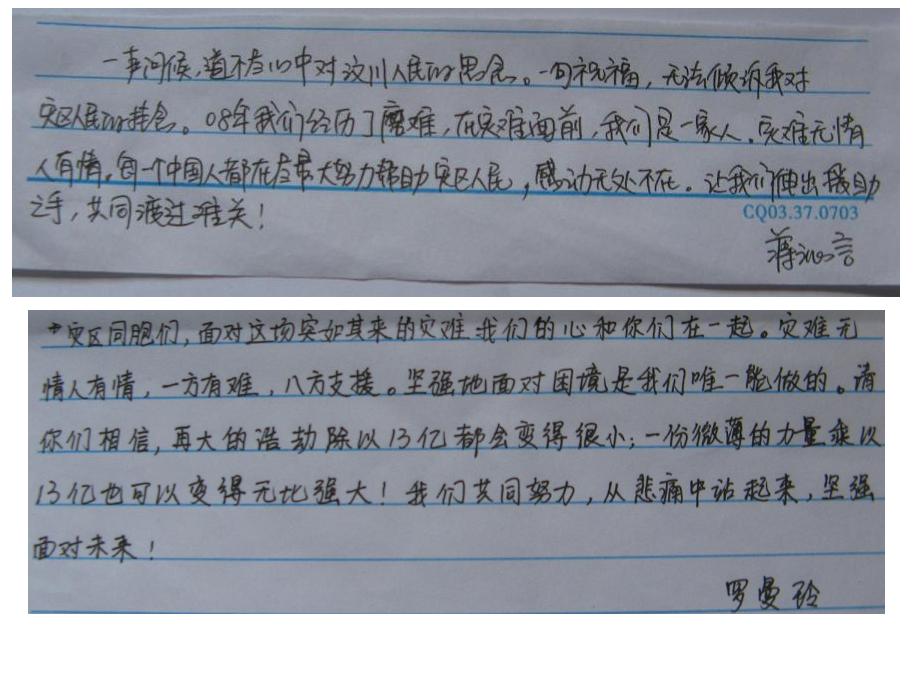 一声问候，道不尽心中对汶川人民的思念。一句祝福，无法倾诉我对
灾区人民的挂念。08年我们经历了磨难，在灾难面前，我们是一家人。灾难无情
人有情。每一个中国人都在尽最大努力帮助灾区人民，感动无处不在。让我们伸出援助
之手，共同渡过难关！
CQ03.37.0703
蒋
灾区同胞们，面对这场突如其来的灾难 我们的心和你们在一起。灾难无
情人有情，一方有难，八方支援。坚强地面对困境是我们唯一能做的。请
你们相信，再大的浩劫除以13亿都会变得很小；一份微薄的力量乘以
13亿也可以变得无比强大！我们共同努力，从悲痛中站起来，坚强
面对未来！
罗曼玲